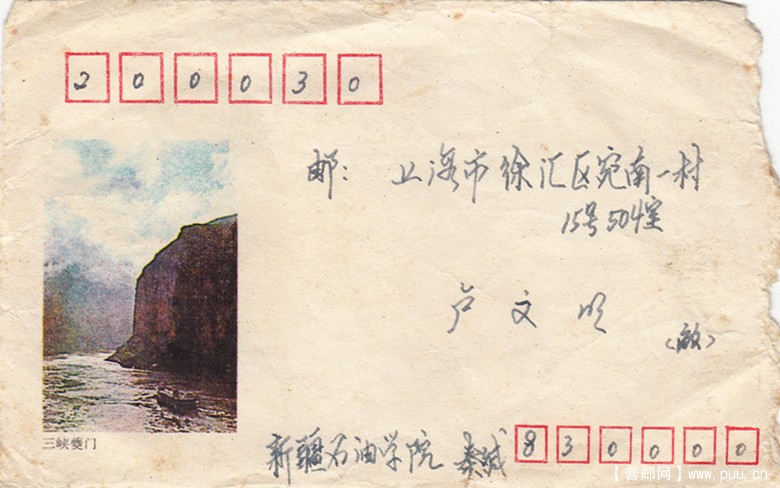 200030
邮：上海市徐汇区宛南一村
15号504室
卢文
（啟）
三峡夔门
新疆石油学院 秦缄 830000
【普邮网】www.puu.cn